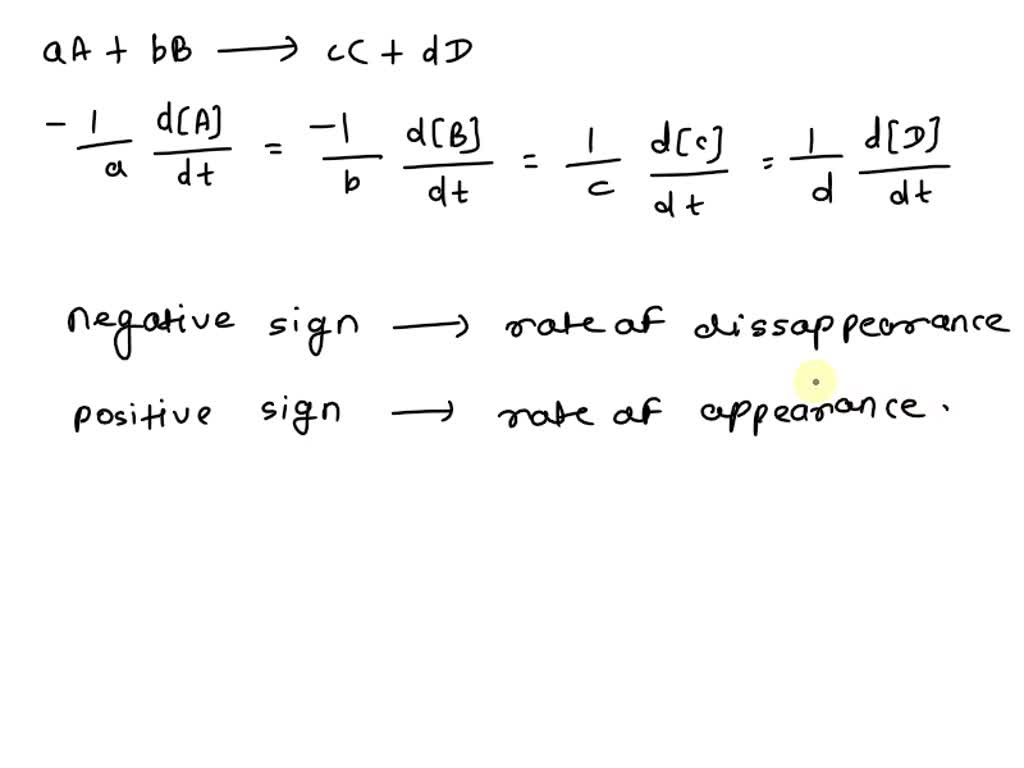 aA + bB ⟶ cC + dD
- 1/a d[A]/dt = -1/b d[B]/dt = 1/c d[C]/dt = 1/d d[D]/dt
negative sign ⟶ rate of dissappearance
positive sign ⟶ rate of appearance.